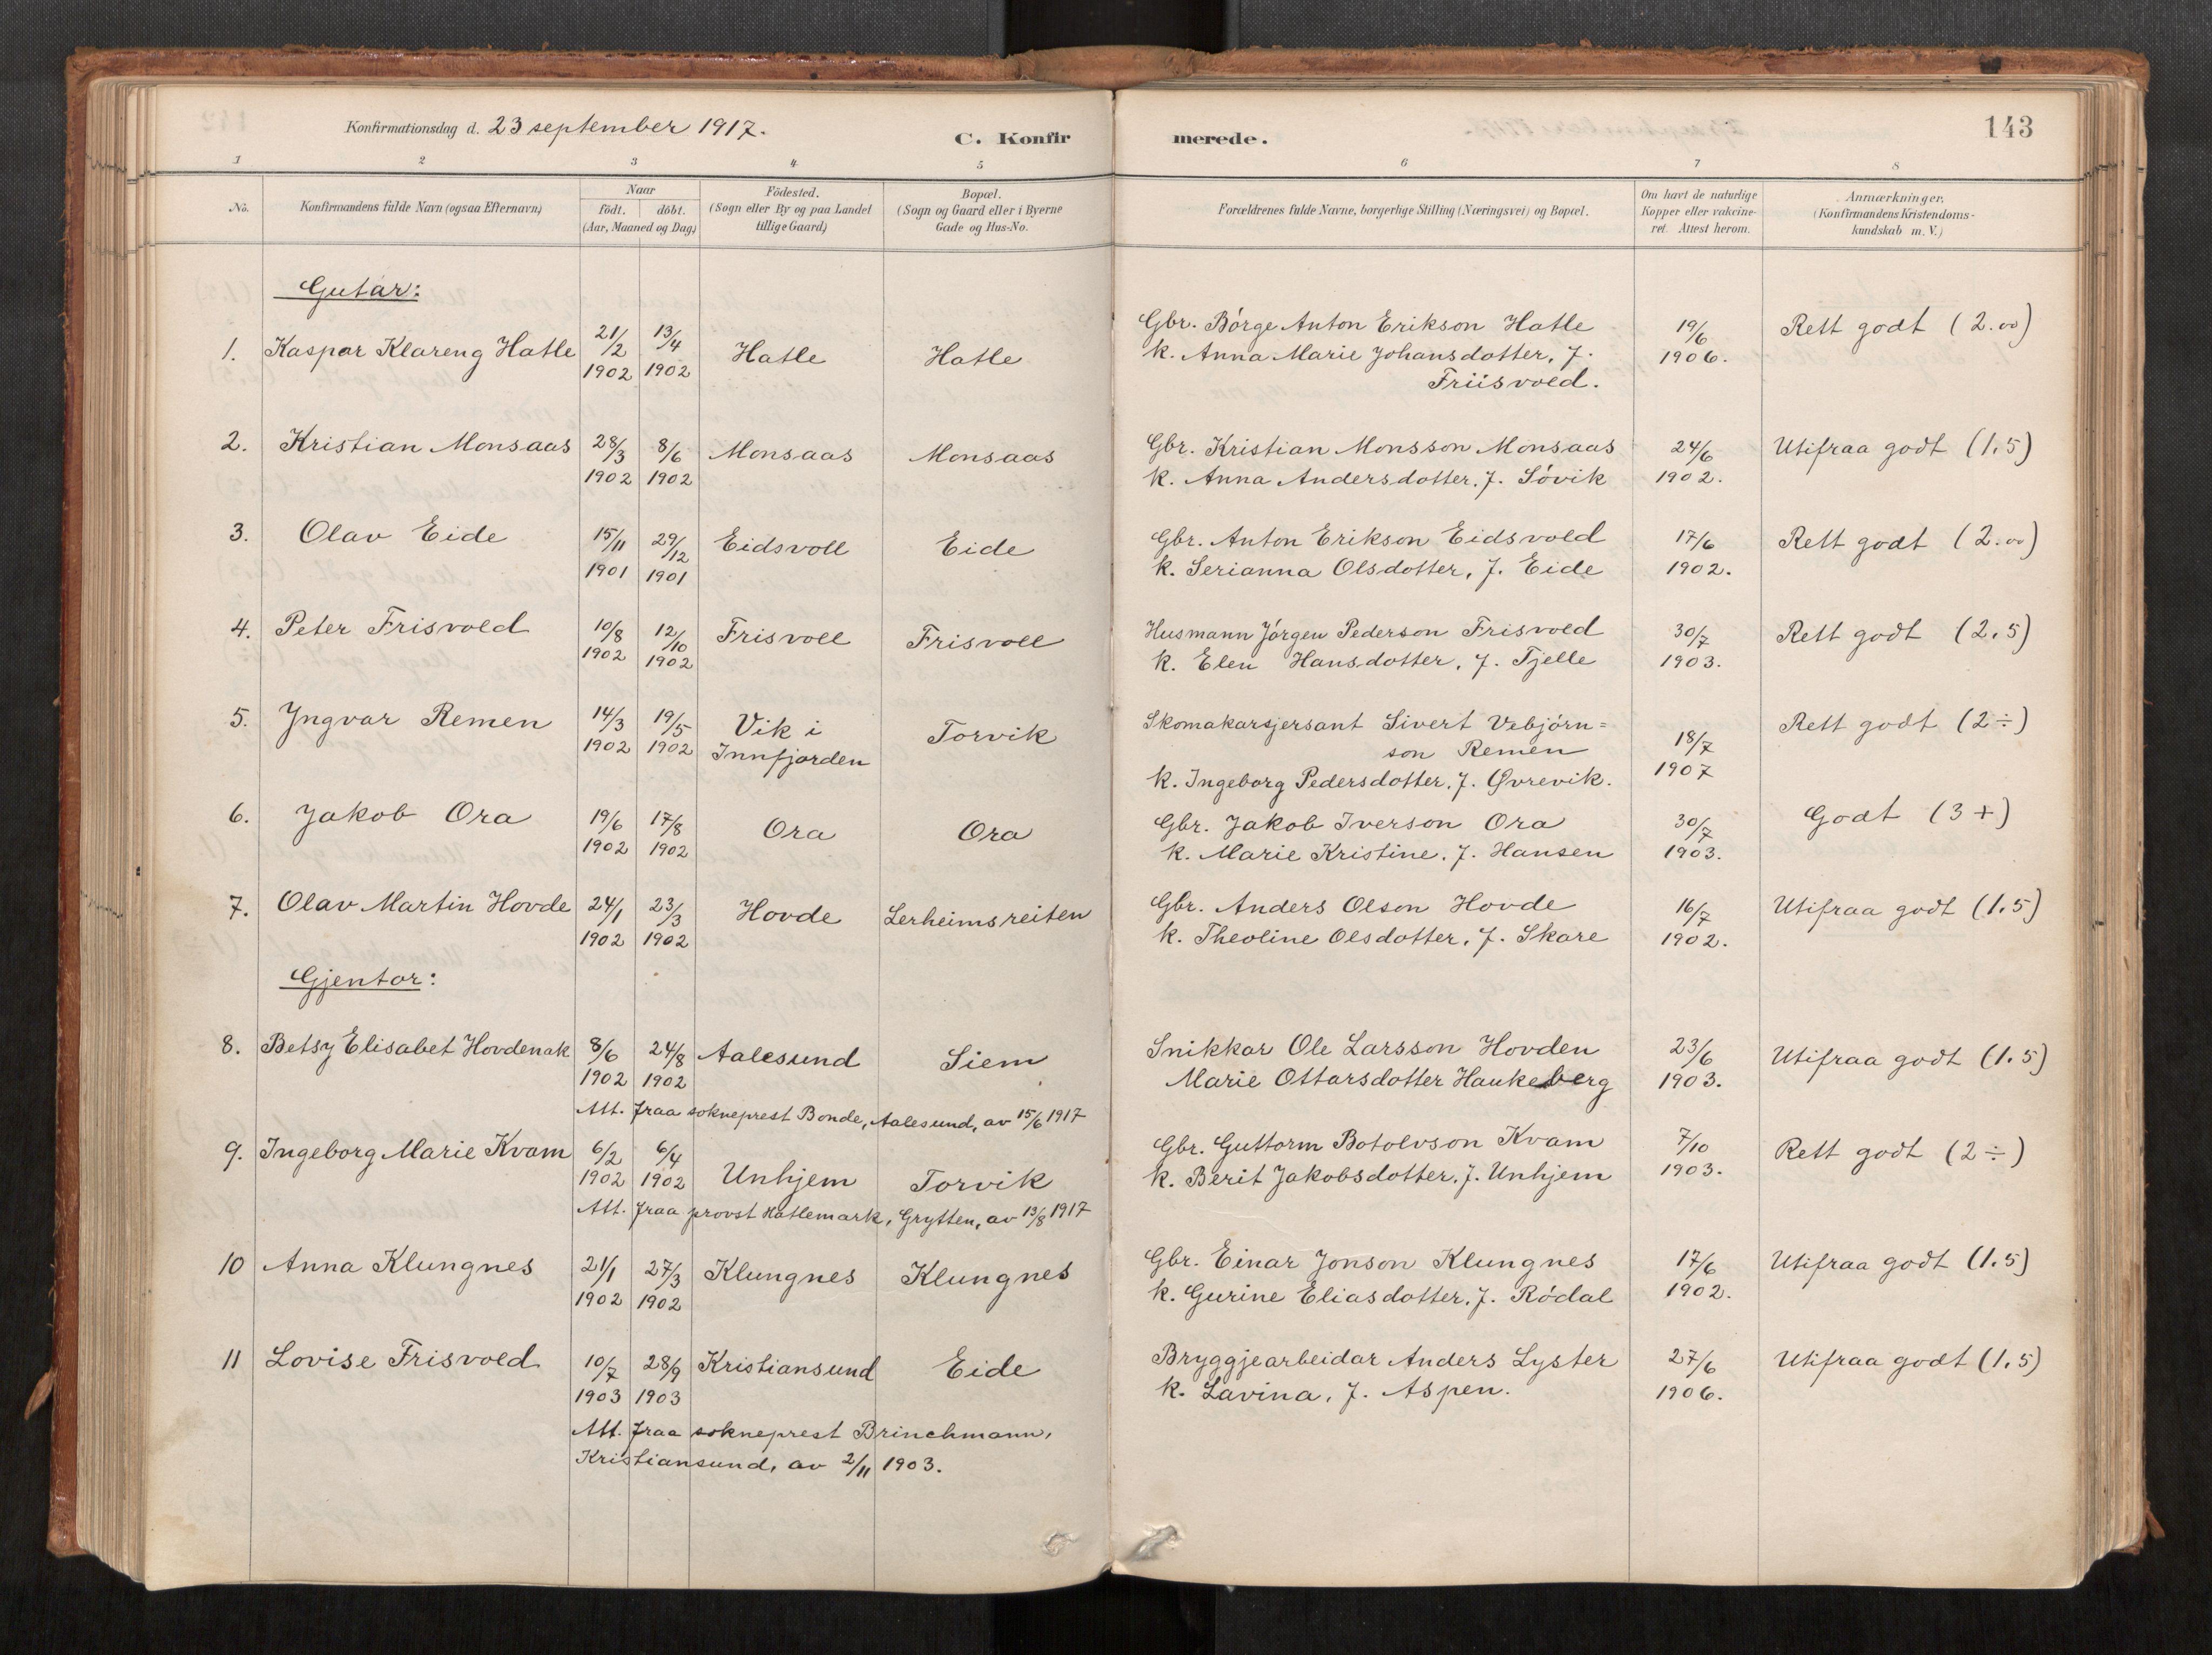 Konfirmationsdag d. 23 september 1917.
C. Konfirmerede.
143
1 2 3 4 5 6 7 8
No.
Konfirmandens fulde Navn (ogsaa Efternavn)
Naar
födt. döbt.
(Aar, Maaned og Dag)
Födested.
(Sogn eller By og paa Landet
tillige Gaard)
Bopæl.
(Sogn og Gaard eller i Byerne
Gade og Hus-No.
Forældrenes fulde Navne, borgerlige Stilling (Næringsvei) og Bopæl.
Om havt de naturlige
Kopper eller vakcine-
ret. Attest herom.
Anmærkninger.
(Konfirmandens Kristendoms-
kundskab m. V.)
Gutar:
1. Kaspar Klareng Hatle 21/2 1902 13/4 1902 Hatle Hatle
Gbr. Börge Anton Erikson Hatle
k. Anna Marie Johansdotter, f.
Friisvold.
19/6 1906. Rett godt (2.00)
2. Kristian Monsaas 28/3 1902 8/6 1902 Monsaas Monsaas
Gbr. Kristian Monsson Monsaas
k. Anna Andersdotter, f. Sövik
24/6 1902. Utifraa godt (1.5)
3. Olav Eide 15/11 1901 29/12 1901 Eidsvoll Eide
Gbr. Anton Erikson Eidsvold
k. Serianna Olsdotter, f. Eide
17/6 1902. Rett godt (2.00)
4. Peter Frisvold 10/8 1902 12/10 1902 Frisvoll Frisvoll
Husmann Jörgen Pederson Frisvold
k. Elen Hansdotter, f. Tjelle
30/7 1903. Rett godt (2.5)
5. Yngvar Remen 14/3 1902 19/5 1902 Vik i
Innfjorden Torvik
Skomakarsjersant Sivert Vebjörn=
son Remen
k. Ingeborg Pedersdotter, f. Øvrevik.
18/7 1907 Rett godt (2÷)
6. Jakob Ora 19/6 1902 17/8 1902 Ora Ora
Gbr. Jakob Iverson Ora
k. Marie Kristine, f. Hansen
30/7 1903. Godt (3+)
7. Olav Martin Hovde 24/1 1902 23/3 1902 Hovde Lerheimsreiten
Gbr. Anders Olson Hovde
k. Theoline Olsdotter, f. Skare
16/7 1902. Utifraa godt (1.5)
Gjentor:
8. Betsy Elisabet Hovdenak 8/6 1902 24/8 1902 Aalesund Siem
Att. fraa sokneprest Bonde, Aalesund, av 15/6 1917
Snikkar Ole Larsson Hovden
Marie Ottarsdotter Haukeberg
23/6 1903. Utifraa godt (1.5)
9. Ingeborg Marie Kvam 6/2 1902 6/4 1902 Unhjem Torvik
Att. fraa provst Hatlemark, Grytten, av 13/8 1917
Gbr. Guttorm Botolvson Kvam
k. Berit Jakobsdotter, f. Unhjem
7/10 1903. Rett godt (2÷)
10 Anna Klungnes 21/1 1902 27/3 1902 Klungnes Klungnes
Gbr. Einar Jonson Klungnes
k. Gurine Eliasdotter, f. Rödal
17/6 1902. Utifraa godt (1.5)
11 Lovise Frisvold 10/7 1903 28/9 1903 Kristiansund Eide
Att. fraa sokneprest Brinchmann,
Kristiansund, av 2/11 1903.
Bryggjearbeidar Anders Lyster
k. Lavina, f. Aspen.
27/6 1906. Utifraa godt (1.5)